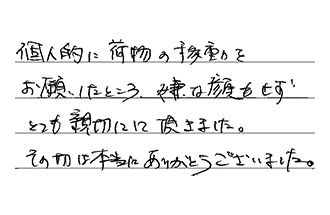 個人的に荷物の移動を
お願いしたところ、嫌な顔もせず
とても親切にして頂きました。
その切は本当にありがとうございました。